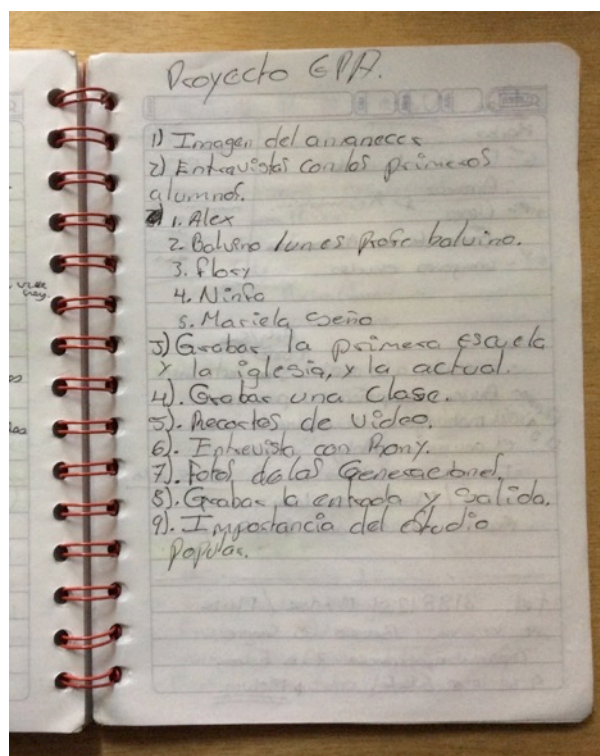 Proyecto EPA.
1) Imagen del amanecer
2) Entrevistas con los primeros
alumnos.
1. Alex
2. Balvino lunes profe balvino.
3. flory
4. Ninfa
5. Mariela Seño
3) Grabar la primera escuela
y la iglesia, y la actual.
4). Grabar una Clase.
5). Recortes de video.
6). Entrevista con Rony.
7). Fotos de las Generaciones.
8). Grabar la entrada y Salida.
9). Importancia del estudio
Popular.